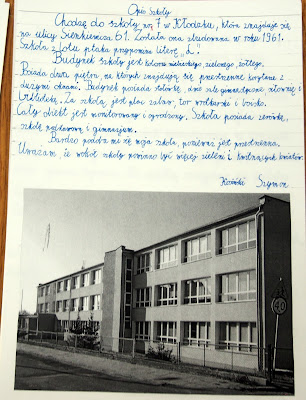 Opis Szkoły
Chodzę do szkoły nr 7 w Kłodzku, która znajduje się
na ulicy Sienkiewicza 61. Została ona zbudowana w roku 1961.
Szkoła z lotu ptaka przypomina literę „L”.
Budynek szkoły jest koloru niebieskiego, zielonego, żółtego.
Posiada dwa piętra, na których znajdują się przestronne korytarze z
dużymi oknami. Budynek posiada stołówkę, dwie sale gimnastyczne, siłownię i
bibliotekę. Za szkołą jest plac zabaw, tor wrotkarski i boisko.
Cały obiekt jest monitorowany i ogrodzony. Szkoła posiada zerówkę,
szkołę podstawową i gimnazjum.
Bardzo podoba mi się moja szkoła, ponieważ jest przestronna.
Uważam, że wokół szkoły powinno być więcej zieleni i kwitnących kwiatów.
Szymon